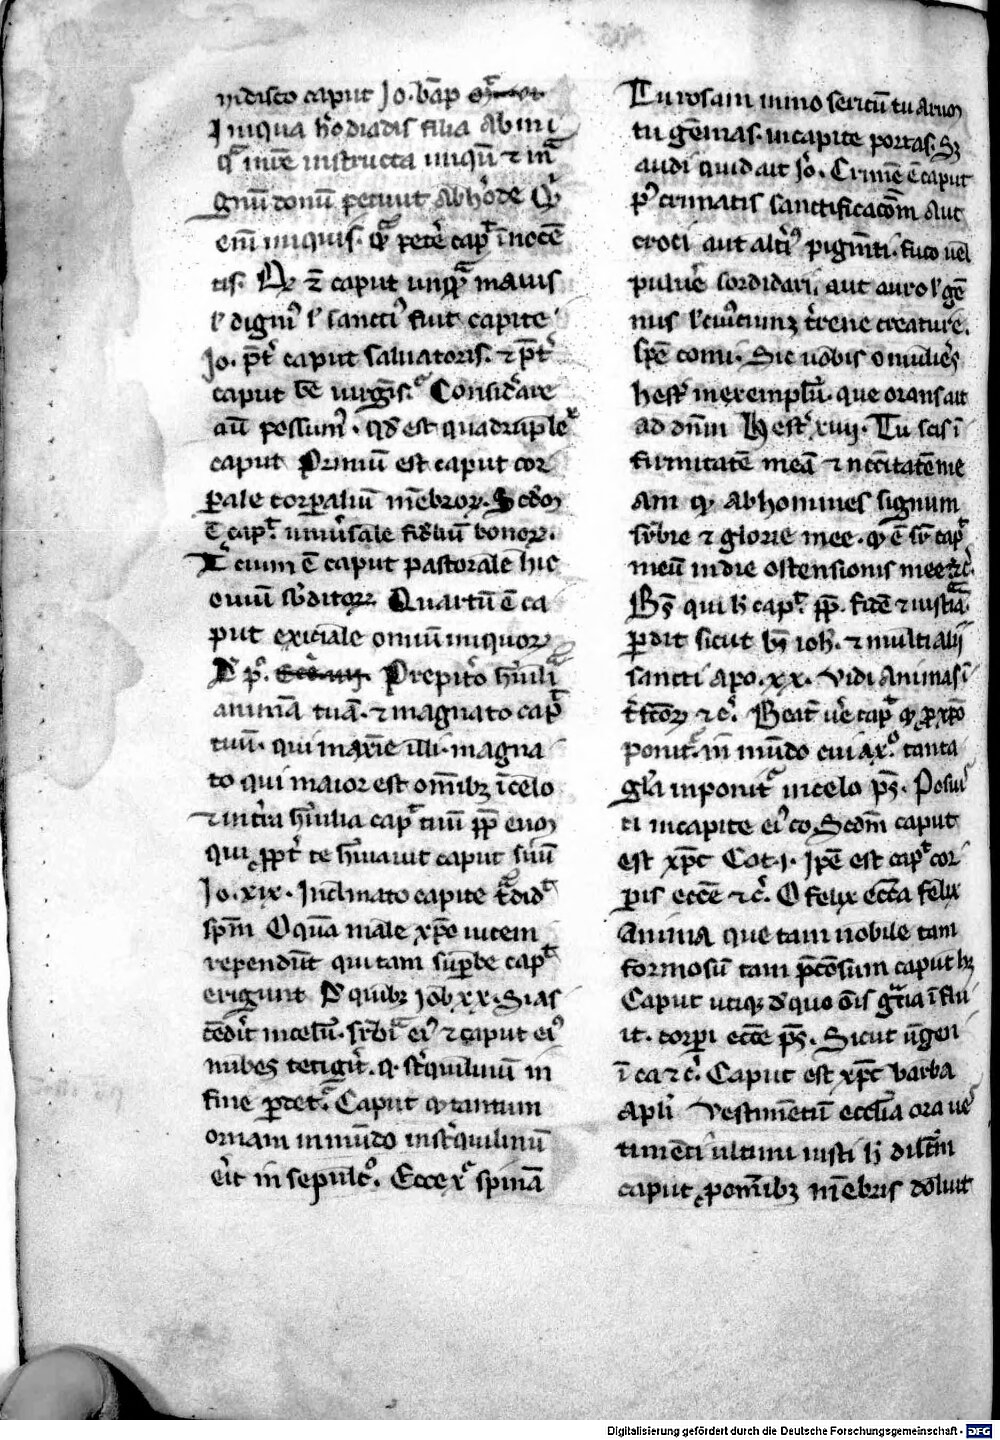 in disco caput Jo. bap̄
Iniqua h̓odiadis filia ab ini
qͣ mr̄e instructa iniqū ⁊ mͣ
gnū donū petiuit ab h̓ode
eni᷒ iniquis. petē capᵗ īnocē
tis. caput unqͣ mavis
l̓ dignꝰ l̓ sanctiꝰ fuit capite
Jo. p̄t̓ caput saluatoris. ⁊ p̄t̓
caput bē uirḡis. Consid̓are
aū possumꝰ. qd̓ est quadruplex
caput Primū est caput cor
ꝑale corꝑaliū mēbroꝝ. Scd̓m
ē capᵗ. uniu̓sale fidliū bonoꝝ.
Tercium ē caput pastorale hic
ouiū sb̓ditoꝝ. Quartū ē ca
put exiciale omniū iniquoꝝ
D̓ pͦ. Prepito h̓mili
animā tuā. ⁊ magnato capᵗ
tuū. qui maxīe illi. magna
to qui maior est om̄ibꝫ ī celo
⁊ in t̓ra h̓milia capᵗ tuū
qui ꝓpt̓ te h̓miauit caput suū
Jo. xix. Inclinato capite t̓didᵗ
sp̄m O quā male xp̄o uicem
rependūt qui tam suꝑbe capᵗ
erigunt D̓ quibꝫ Job xx. Si as
cēdit̓ in celū. sr̓biͣ eiꝰ ⁊ caput eiꝰ
nubes tetigit̓. qͣ st̓quiliniū in
fine ꝑdetᷣ. Caput qd̓ tantum
ornam in mūdo in st̓quilinū
erit̓ in sepulcͦ. Ecce xᷣ spinā
Tu rosam immo sericū tu
tu gēmas. in capite portas. Sꝫ
audi quid ait Jo. Crimē ē caput
pͥ crimatis sanctificacōm aut
croci aut alt̓iꝰ pigm̄ti. fuco uel
pulue̓ sordidari. aut auro l̓ gē
mis l̓ cuiꝰcunqꝫ t̓rene creature.
spē comi. Sit uobis o mulie̓s
hest̓ in exemplū. que orans ait
ad dn̄m Hest̓ xiiij. Tu scis ī
firmitatē meā ⁊ nccītatē me
am qd̓ abhomines signum
sr̓bie ⁊ glorie mee. qd̓ ē sr̓ capᵗ
meū in die ostensionis mee ⁊c̓.
Bꝰ qui h̓ capᵗ. ꝓp̄. fidē ⁊ iusticiā
ꝑdit sicut bꝰ ioh. ⁊ multi alij
sancti apo. xx. Vidi animas ī
t̓fcoꝝ ⁊c̓. Beat̓ ue̓ capᵗ qd̓ ꝓ xp̄o
ponitᷣ in mūdo cui a xͦ. tanta
gl̓a inponitᷣ in celo pꝰ. Posuiˢ
ti in capite eiꝰ co. Scdm̄ caput
est xp̄c Col. j. Ip̄e est capᵗ cor
ꝑis ecc̄e ⁊c̓. O felix ecc̄a felix
anima que tam nobile tam
formosū tam p̄cōsum caput hꝫ
Caput utiqꝫ d̓ quo ōis gͣtia īflu
it. corpi ecc̄e pꝰ. Sicut ūgen
ī ca ⁊c̓. Caput est xp̄c barba
apl̓i Vestimētū ecclia ora ues
timēti ultimi iusti h̓ dilc̄m
caput ꝓ om̄ibꝫ mēbris doluit